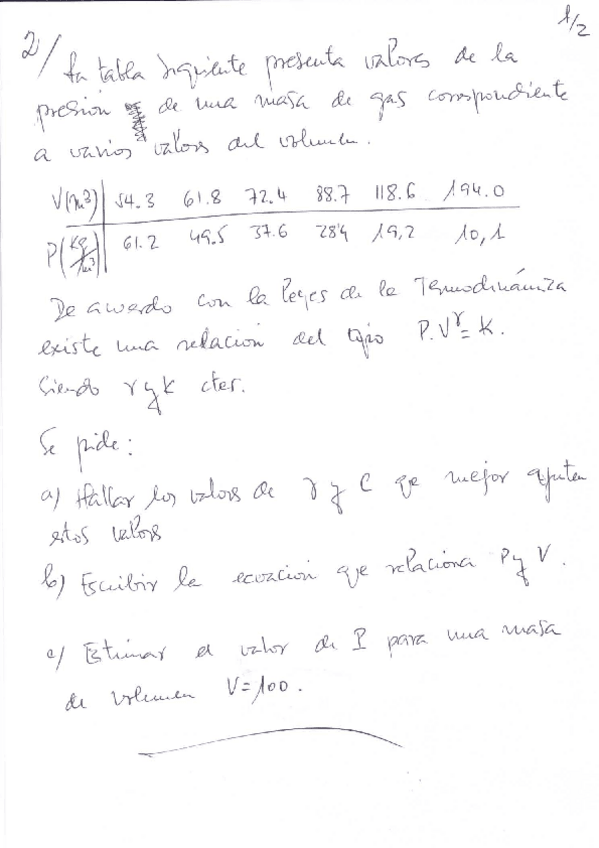 1/2
2/ La tabla siguiente presenta valores de la
presión de una masa de gas correspondiente
a varios valores del volumen.
V(m³) 54.3 61.8 72.4 88.7 118.6 194.0
P(kg/m³) 61.2 49.5 37.6 28.4 19,2 10,1
De acuerdo con la leyes de la Termodinámiza
existe una relación del tipo P.V^γ = K.
Siendo γ y K ctes.
Se pide:
a) Hallar los valores de γ y C que mejor ajusten
estos valores
b) Escribir la ecuación que relaciona P y V.
c) Estimar el valor de P para una masa
de volumen V=100.